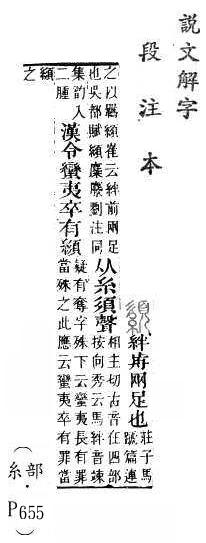 說文解字
段注本
絆歬兩足也
莊子馬
蹏篇連
之以羈崔云絆前兩足
也吳都賦麋麖劉注同
从糸須聲
相主切古音在四部
按向秀云馬絆音竦
集韵入
二腫
漢令蠻夷卒有
疑有奪字殊下云蠻夷長有罪
當殊之此應云蠻夷卒有罪當
之
(糸部・P655)